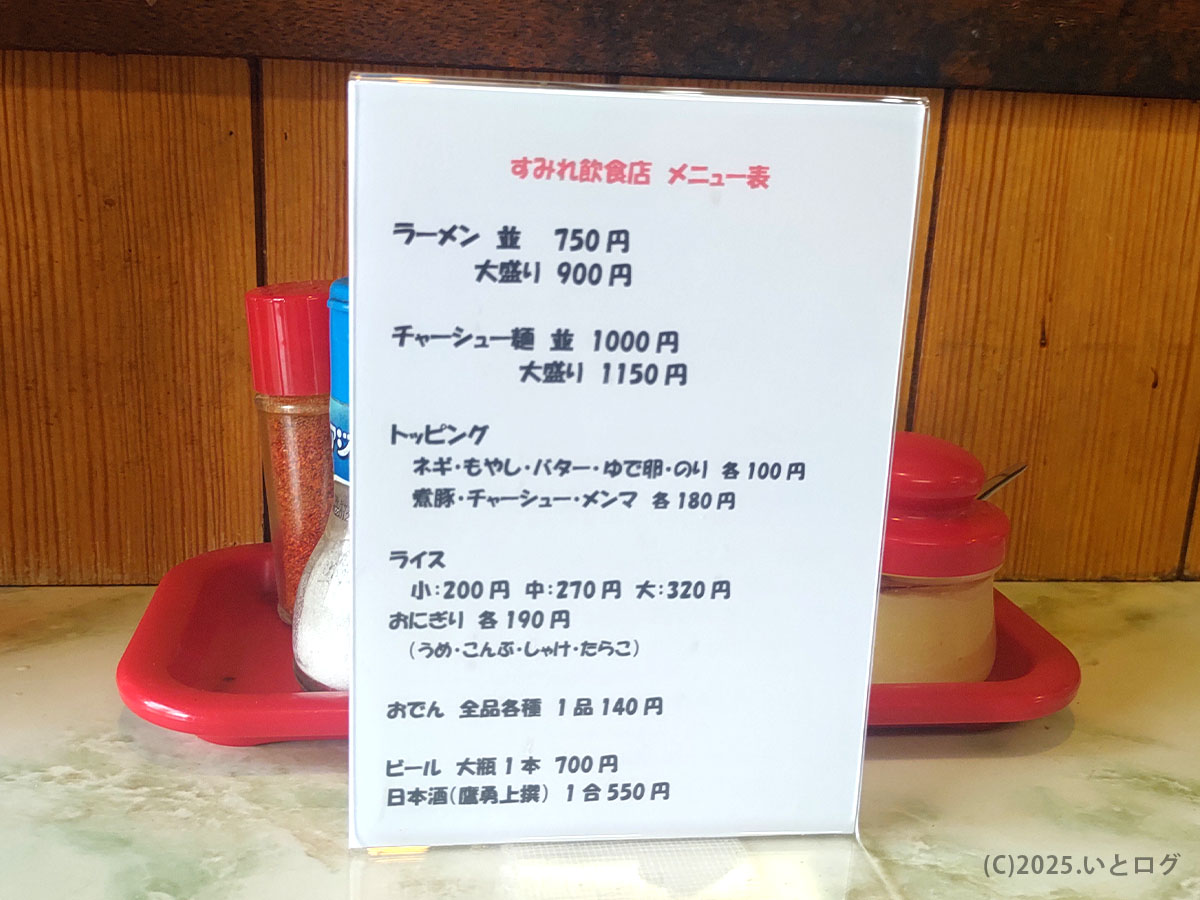 すみれ飲食店 メニュー表
ラーメン 並 750円
大盛り 900円
チャーシュー麺 並 1000円
大盛り 1150円
トッピング
ネギ・もやし・バター・ゆで卵・のり 各100円
煮豚・チャーシュー・メンマ 各180円
ライス
小:200円 中:270円 大:320円
おにぎり 各190円
(うめ・こんぶ・しゃけ・たらこ)
おでん 全品各種 1品140円
ビール 大瓶1本 700円
日本酒(鷹勇上撰) 1合550円
(C)2025.いとログ